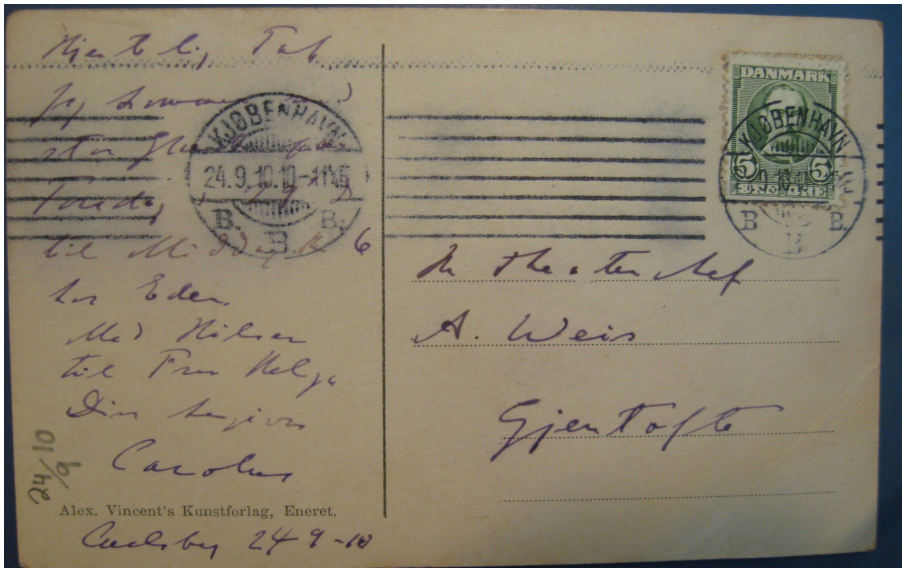 Hjertelig Tak
Jeg kommer med
stor Glæde
Tirsdag
til Middag Kl 6
hos Eder.
Med Hilsen
til Fru Helga
Din hengivne
Carolus
Alex. Vincent's Kunstforlag, Eneret.
Carlsberg 24 9-10
24/9 10
KJØBENHAVN
24.9.10.10-11
B. B. B.
DANMARK
5 5
KJØBENHAVN
B B B.
Hr Theaterchef
A. Weis
Gjentofte